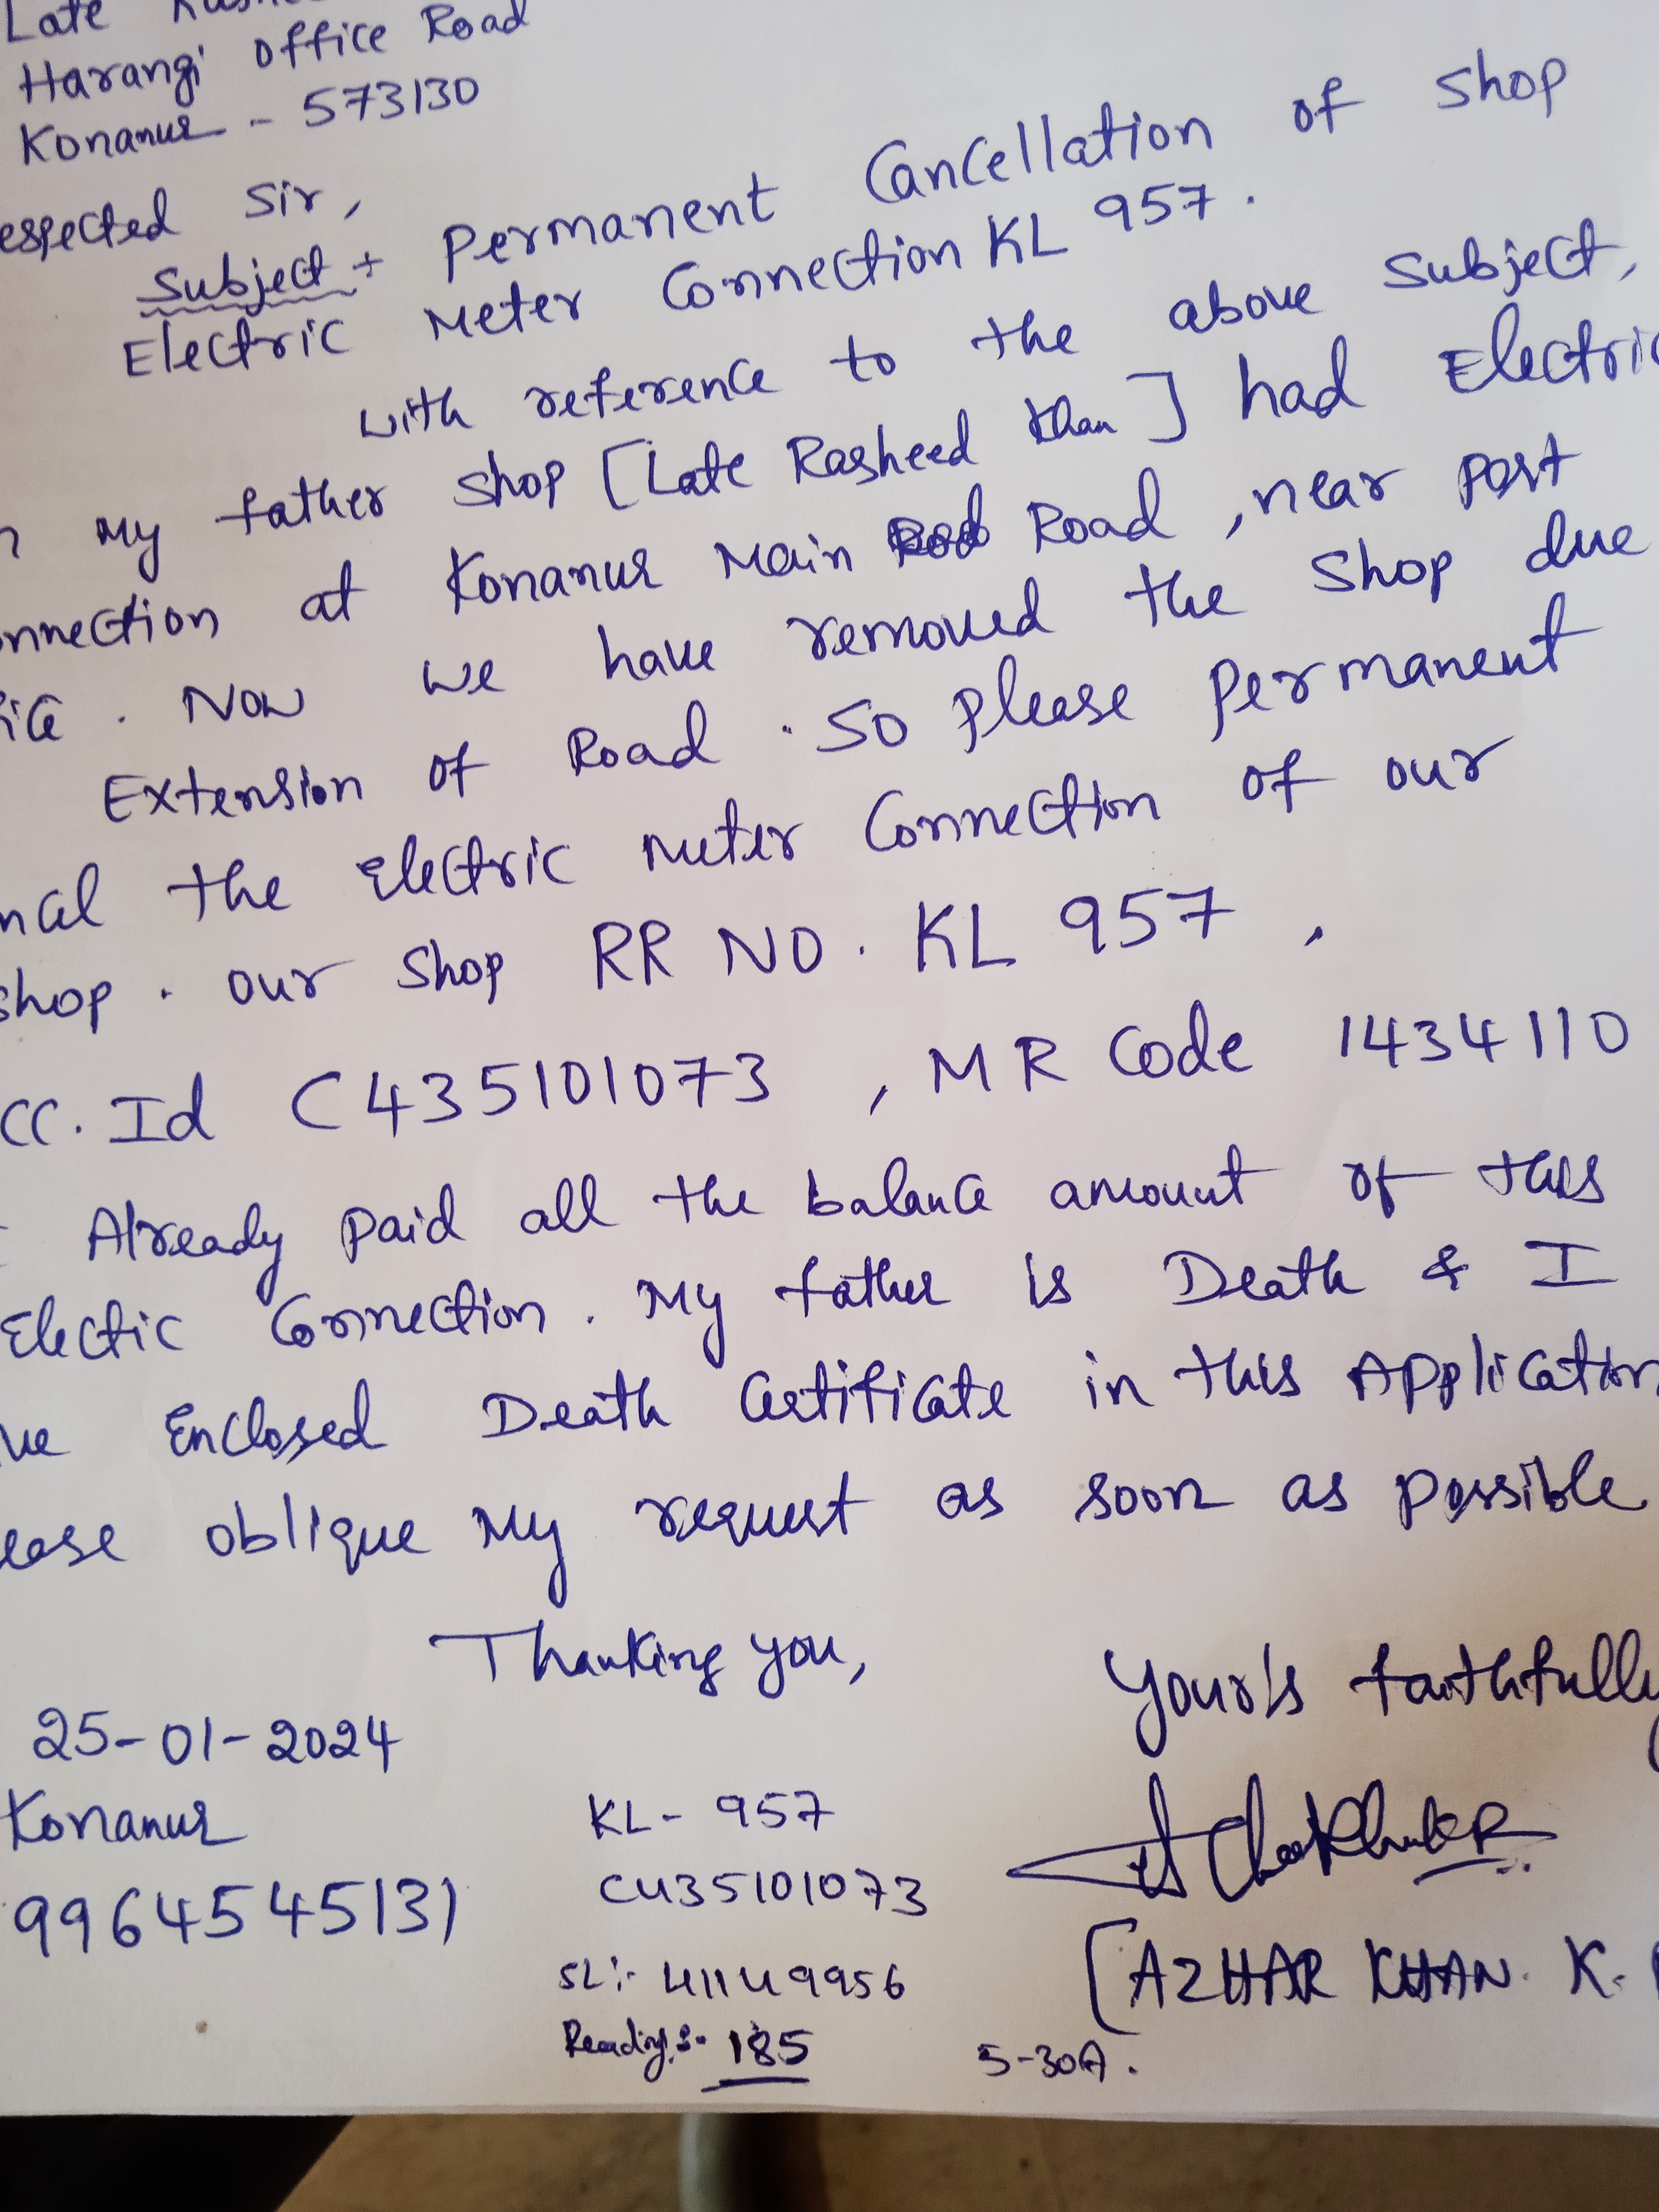 Late
Harangi office Road
Konanur - 573130
espected Sir,
Subject : Permanent Cancellation of Shop
Electric Meter Connection KL 957.
with reference to the above subject,
my father shop [Late Rasheed Khan] had Electric
nnection at Konanur Main Road, near Post
ice. Now we have removed the shop due
Extension of Road. So please permanent
ncal the Electric meter connection of our
shop. our shop RR NO. KL 957,
CC. Id C435101073, MR Code 1434110
Already paid all the balance amount of this
Electic Connection. My father is Death & I
ve Enclosed Death Certificate in this Application
ease oblique my request as soon as possible
Thanking you,
Your's faithfully
25-01-2024
Konanur
9964545131
KL- 957
C435101073
SL:- 41149956
Reading:- 185
[AZHAR KHAN. K.
5-30A.